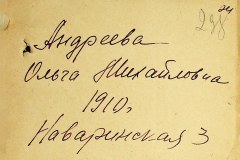 24
238
Андреева
Ольга Михайловна
1910г
Наваринская 3